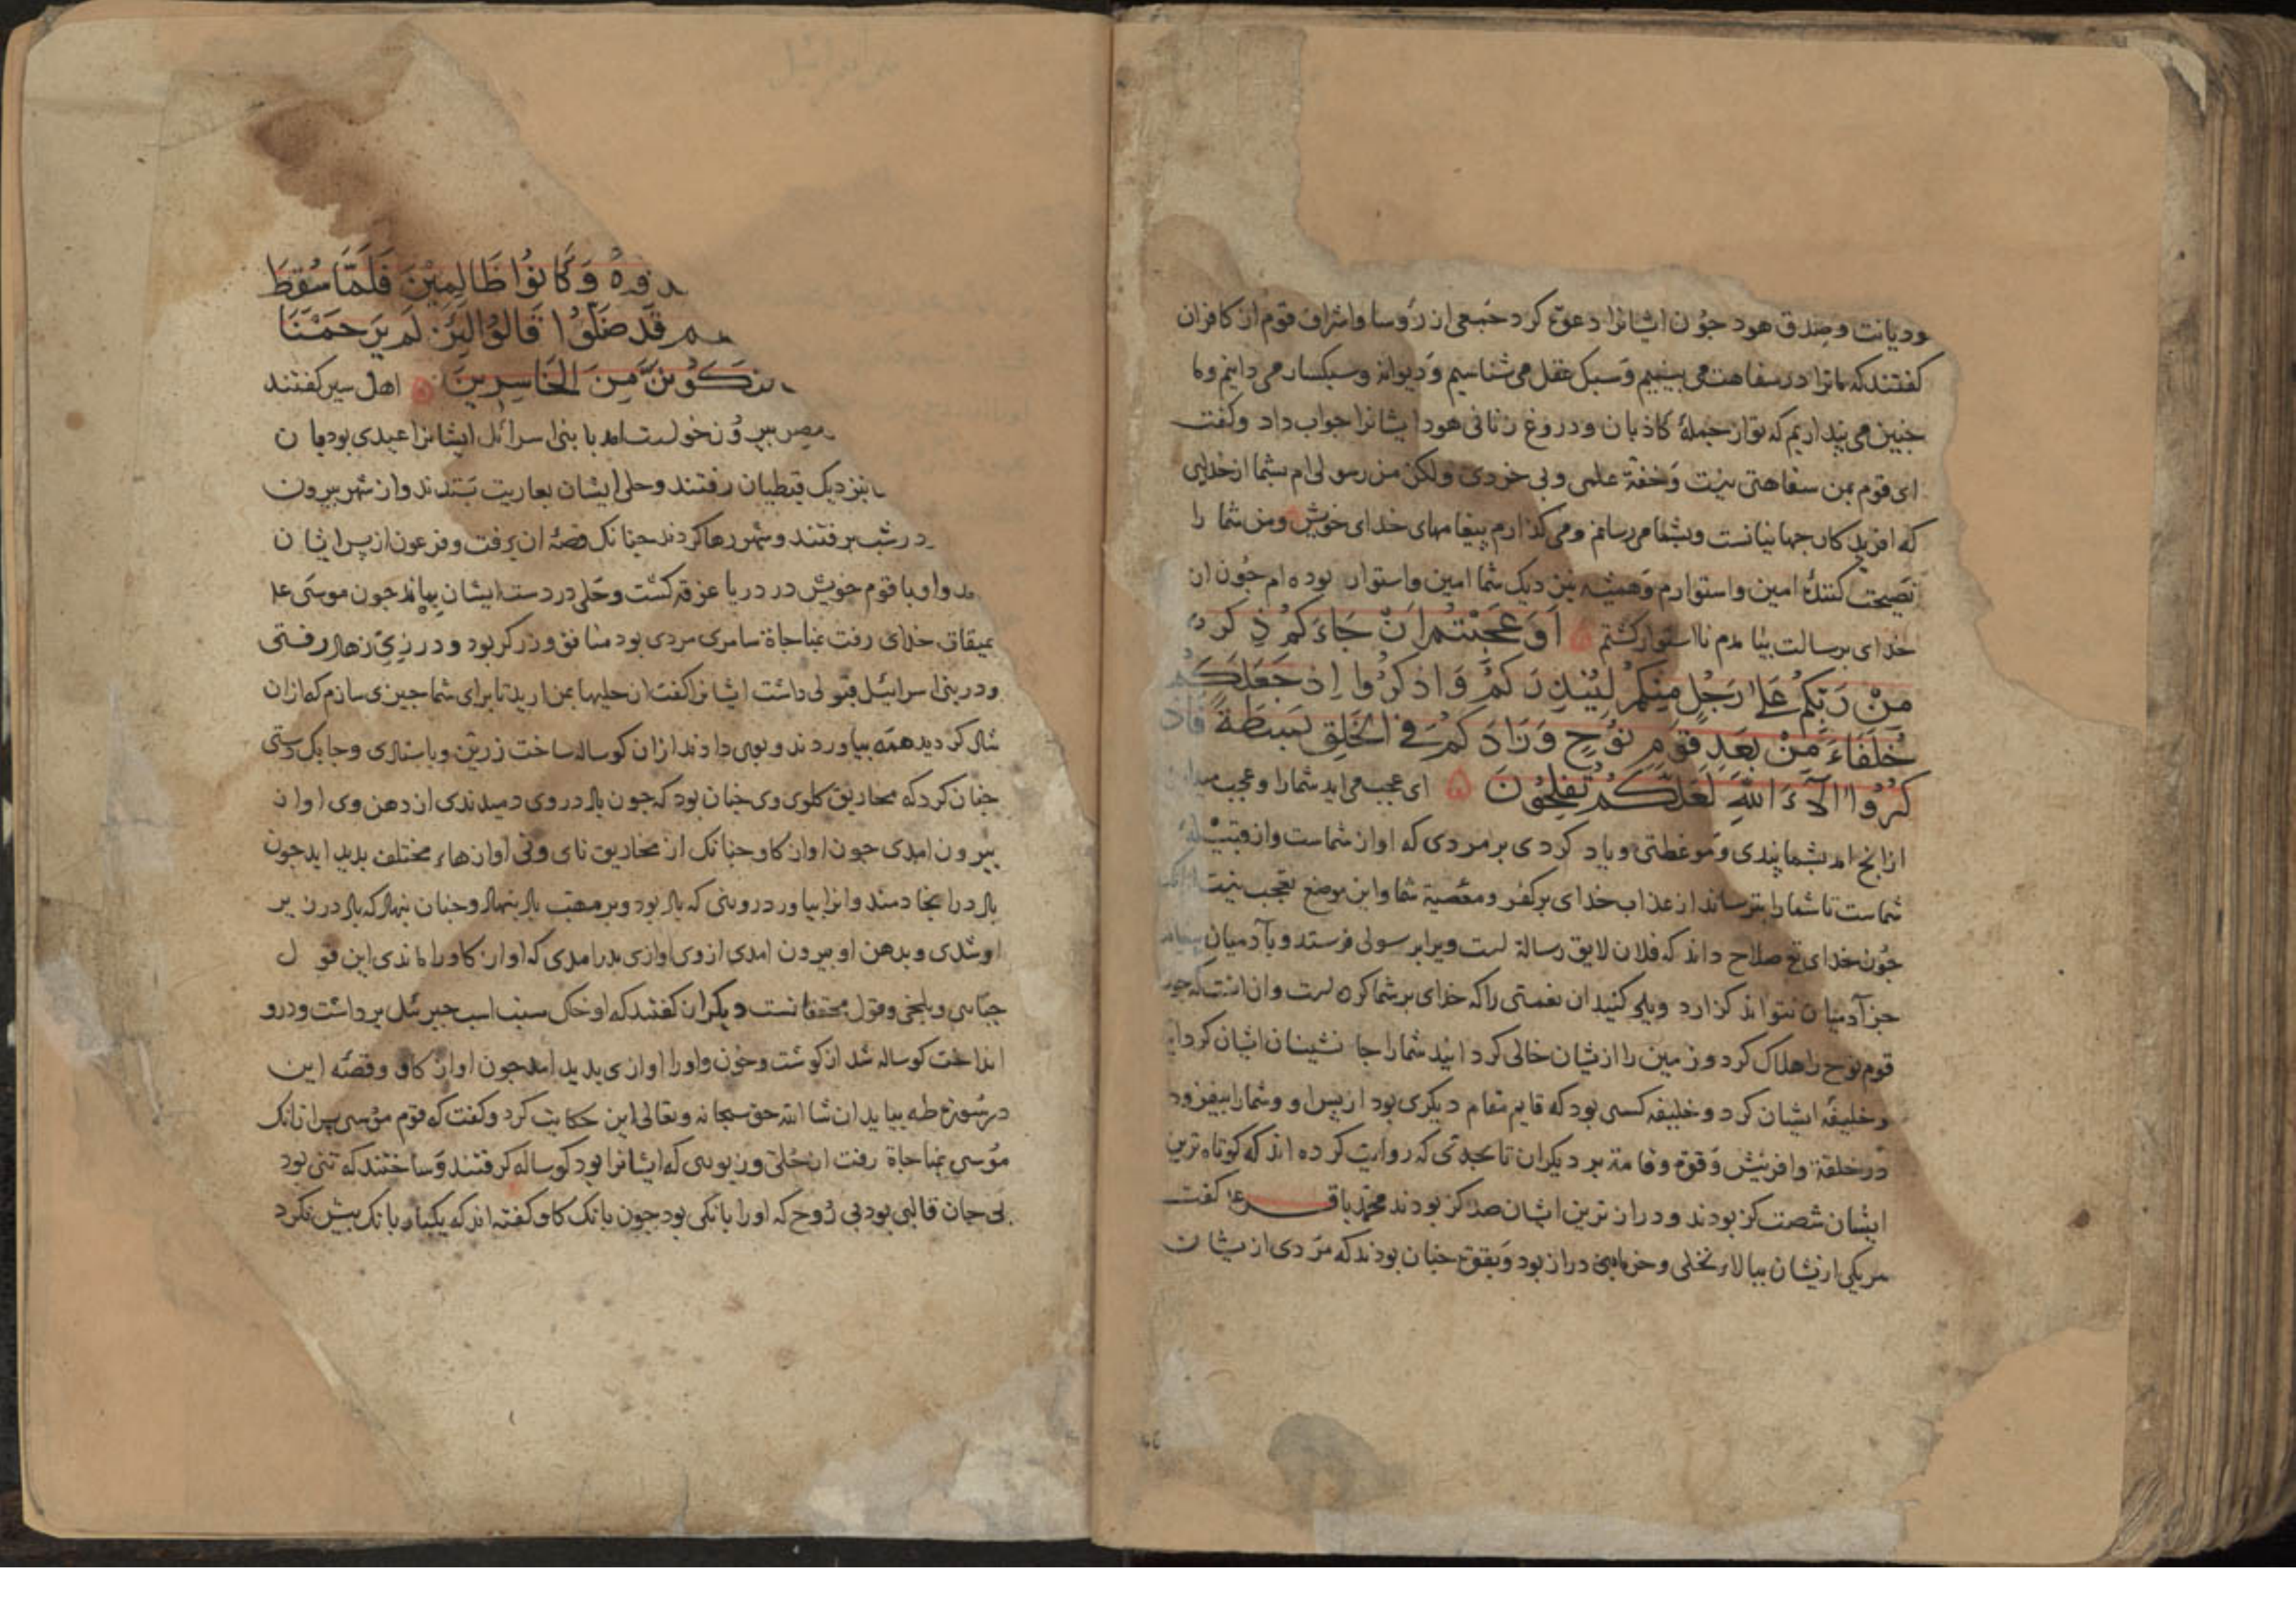 ودیانت وصدق هود جون ایشانرا دعوة کرد جمعی از رؤسا واشراف قوم از کافران
کفتند که ما ترا در سفاهت می بینیم و سبک عقل می شناسیم و دیوانه وسبکسار می دانیم وما
جنین می پنداریم که تو از جملهٔ کاذبان ودروغ زنانی هود ایشانرا جواب داد وکفت
ای قوم بمن سفاهتی نیست وخفة علمی وبی خردی ولکن من رسولی ام بشما از خدای
که افریدکار جهانیانست وبشما می رسانم ومی کذارم پیغامهای خدای خویش ومن شما را
نصیحت کنندهٔ امین واستوارم وهمیشه بنزدیک شما امین واستوار بوده ام جون از
خدای برسالت بیامدم نااستوار کشتم اَوَعَجِبْتُمْ اَنْ جَاءَكُمْ ذِكْرٌ
مِنْ رَبِّكُمْ عَلٰى رَجُلٍ مِنْكُمْ لِيُنْذِرَكُمْ وَاذْكُرُوا اِذْ جَعَلَكُمْ
خُلَفَاءَ مِنْ بَعْدِ قَوْمِ نُوْحٍ وَزَادَكُمْ فِي الْخَلْقِ بَسْطَةً فَاذْ
كُرُوا اٰلَآءَ اللهِ لَعَلَّكُمْ تُفْلِحُوْنَ ای عجب می اید شمارا وعجب
ازانج امد بشما پندی وموعظتی ویاد کردی بر مردی که او از شماست واز قبیلهٔ
شماست تا شما را بترساند از عذاب خدای بر کفر ومعصیة شما واین موضع تعجب نیست
جون خدای تع صلاح داند که فلان لایق رسالة است ویرا برسولی فرستد وبآدمیان
جز آدمیان نتواند کزارد ویاد کنید ان نعمتی را که خدای بر شما کرده است وان انست که جون
قوم نوح را هلاک کرد وزمین را ازیشان خالی کردانید شمارا جانشینان ایشان کرد
وخلیفهٔ ایشان کرد وخلیفه کسی بود که قایم مقام دیکری بود از پس او وشمارا بیفزود
در خلقة وافرینش وقوة وقامة بر دیکران تا بحدی که روایت کرده اند که کوتاه ترین
ایشان شصت کز بودند ودراز ترین ایشان صد کز بودند محمد باقر ع کفت
هر یکی ازیشان ببالاء نخلی وخرمابنی دراز بود وبقوة جنان بودند که مردی ازیشان
وَكَانُوْا ظَالِمِيْنَ فَلَمَّا سُقِطَ
قَدْ ضَلُّوْا قَالُوْا لَئِنْ لَمْ يَرْحَمْنَا
مِنَ الْخَاسِرِيْنَ اهل سیر کفتند
مصر بیرون خواست امد با بنی اسرائل ایشانرا عیدی بود
بنزدیک قبطیان رفتند وحلی ایشان بعاریت بستدند واز شهر بیرون
در شب برفتند وشهر رها کردند جنانک قصهٔ ان برفت وفرعون از پس ایشان
واو با قوم خویش در دریا غرقه کشت وحلی در دست ایشان بماند جون موسی عل
بمیقات خدای رفت بمناجاة سامری مردی بود منافق وزرکر بود ودر زی زهاد رفتی
ودر بنی اسرائیل قبولی داشت ایشانرا کفت ان حلیها بمن ارید تا برای شما جیزی سازم که ازان
شاد کردید همه بیاوردند وبوی دادند ازان کوساله ساخت زرین وباستادی وجابک دستی
جنان کرد که مخاریق کلوی وی جنان بود که جون باد در وی دمیدندی از دهن وی اواز
بیرون امدی جون اواز کاو جنانک از مخاریق نای ونی اوازهاء مختلف بدید اید جون
باد در انجا دمند وانرا بیاورد روبنی که باد بود وبر مهب باد بنهاد وجنان نهاد که باد در زیر
او شدی وبدهن او بیرون امدی ازوی اوازی بدرامدی که اواز کاو را ماندی این قول
جبائی وبلخی وقول محققانست دیکران کفتند که او خاک سنب اسب جبرئل برداشت ودرو
انداخت کوساله شد از کوشت وخون واورا اوازی بدید امد جون اواز کاو وقصهٔ این
در سورة طه بیاید ان شا الله حق سبحانه وتعالی این حکایت کرد وکفت که قوم موسی پس ازانک
موسی بمناجاة رفت از حلی وزیوری که ایشانرا بود کوساله کرفتند وساختند که تنی بود
بی جان قالبی بود بی روح که اورا بانکی بود جون بانک کاو کفته اند که یکبار بانک بیش نکرد